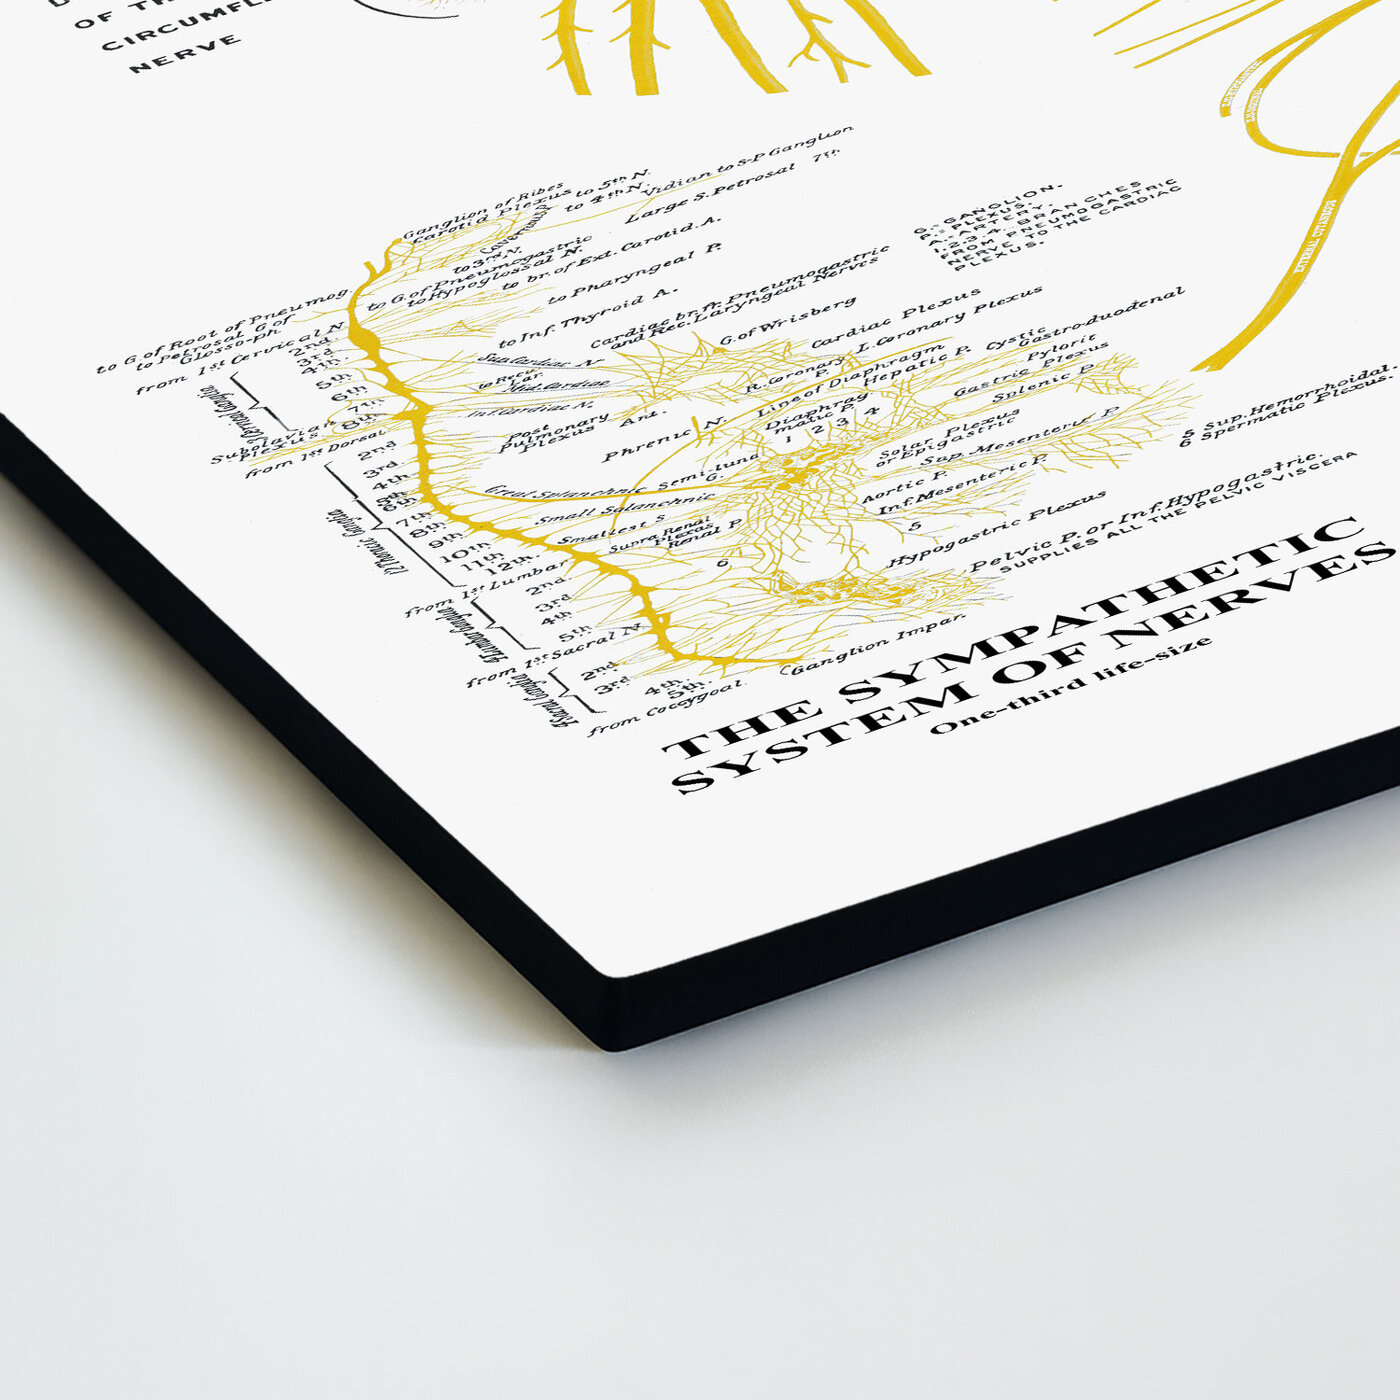 OF TH
CIRCUMFLE
NERVE
Ganglion of Ribes
Carotid Plexus to 5th N.
Cavernous P.
to 4th N.
Vidian to S-P Ganglion
to 3rd N.
Large S. Petrosal 7th
to G. of Pneumogastric
to Hypoglossal N.
to br. of Ext. Carotid. A.
to G. of Root of Pneumog
to Petrosal G. of
Glosso-ph
to Pharyngeal P.
from 1st Cervical N.
2nd
3rd
4th
5th
6th
7th
8th
to Inf. Thyroid A.
Cardiac br. fr. Pneumogastric
and Rec. Laryngeal Nerves
G.= GANGLION.
P.= PLEXUS.
A.= ARTERY.
1.2.3.4. BRANCHES
FROM PNEUMOGASTRIC
NERVE TO THE CARDIAC
PLEXUS.
Sup. Cardiac N.
to Recu.
Lar.
Mid. Cardiac
Inf. Cardiac N.
G. of Wrisberg
Cardiac Plexus
R. Coronary P.
L. Coronary Plexus
Post
Pulmonary
Plexus
Ant.
Line of Diaphragm
Hepatic P.
Cystic
Gastro-duodenal
Pylorit
Gastric Plexus
Splenic P.
Phrenic N.
Diaphrag
matic P.
1 2 3 4
Semi-luna
G.
Solar Plexus
or Epigastric
Sup. Mesenteric P.
Aortic P.
Inf. Mesenteric P.
5
5 Sup. Hemorrhoidal.
6 Spermatic Plexus.
Subclavian
Plexus
from 1st Dorsal
2nd
3rd
4th
5th
6th
7th
8th
9th
10th
11th
12th.
Great Splanchnic
Small Splanchnic
Smallest S
Supra Renal
Plexus
Renal P
6
Hypogastric Plexus
Pelvic P. or Inf. Hypogastric.
SUPPLIES ALL THE PELVIC VISCERA
12 Thoracic Ganglia
from 1st Lumbar
2nd.
3rd
4th
5th
from 1st Sacral N.
2nd
3rd
4th.
5th.
from Coccygoal
Ganglion Impar.
THE SYMPATHETIC
SYSTEM OF NERVES
One-third life-size